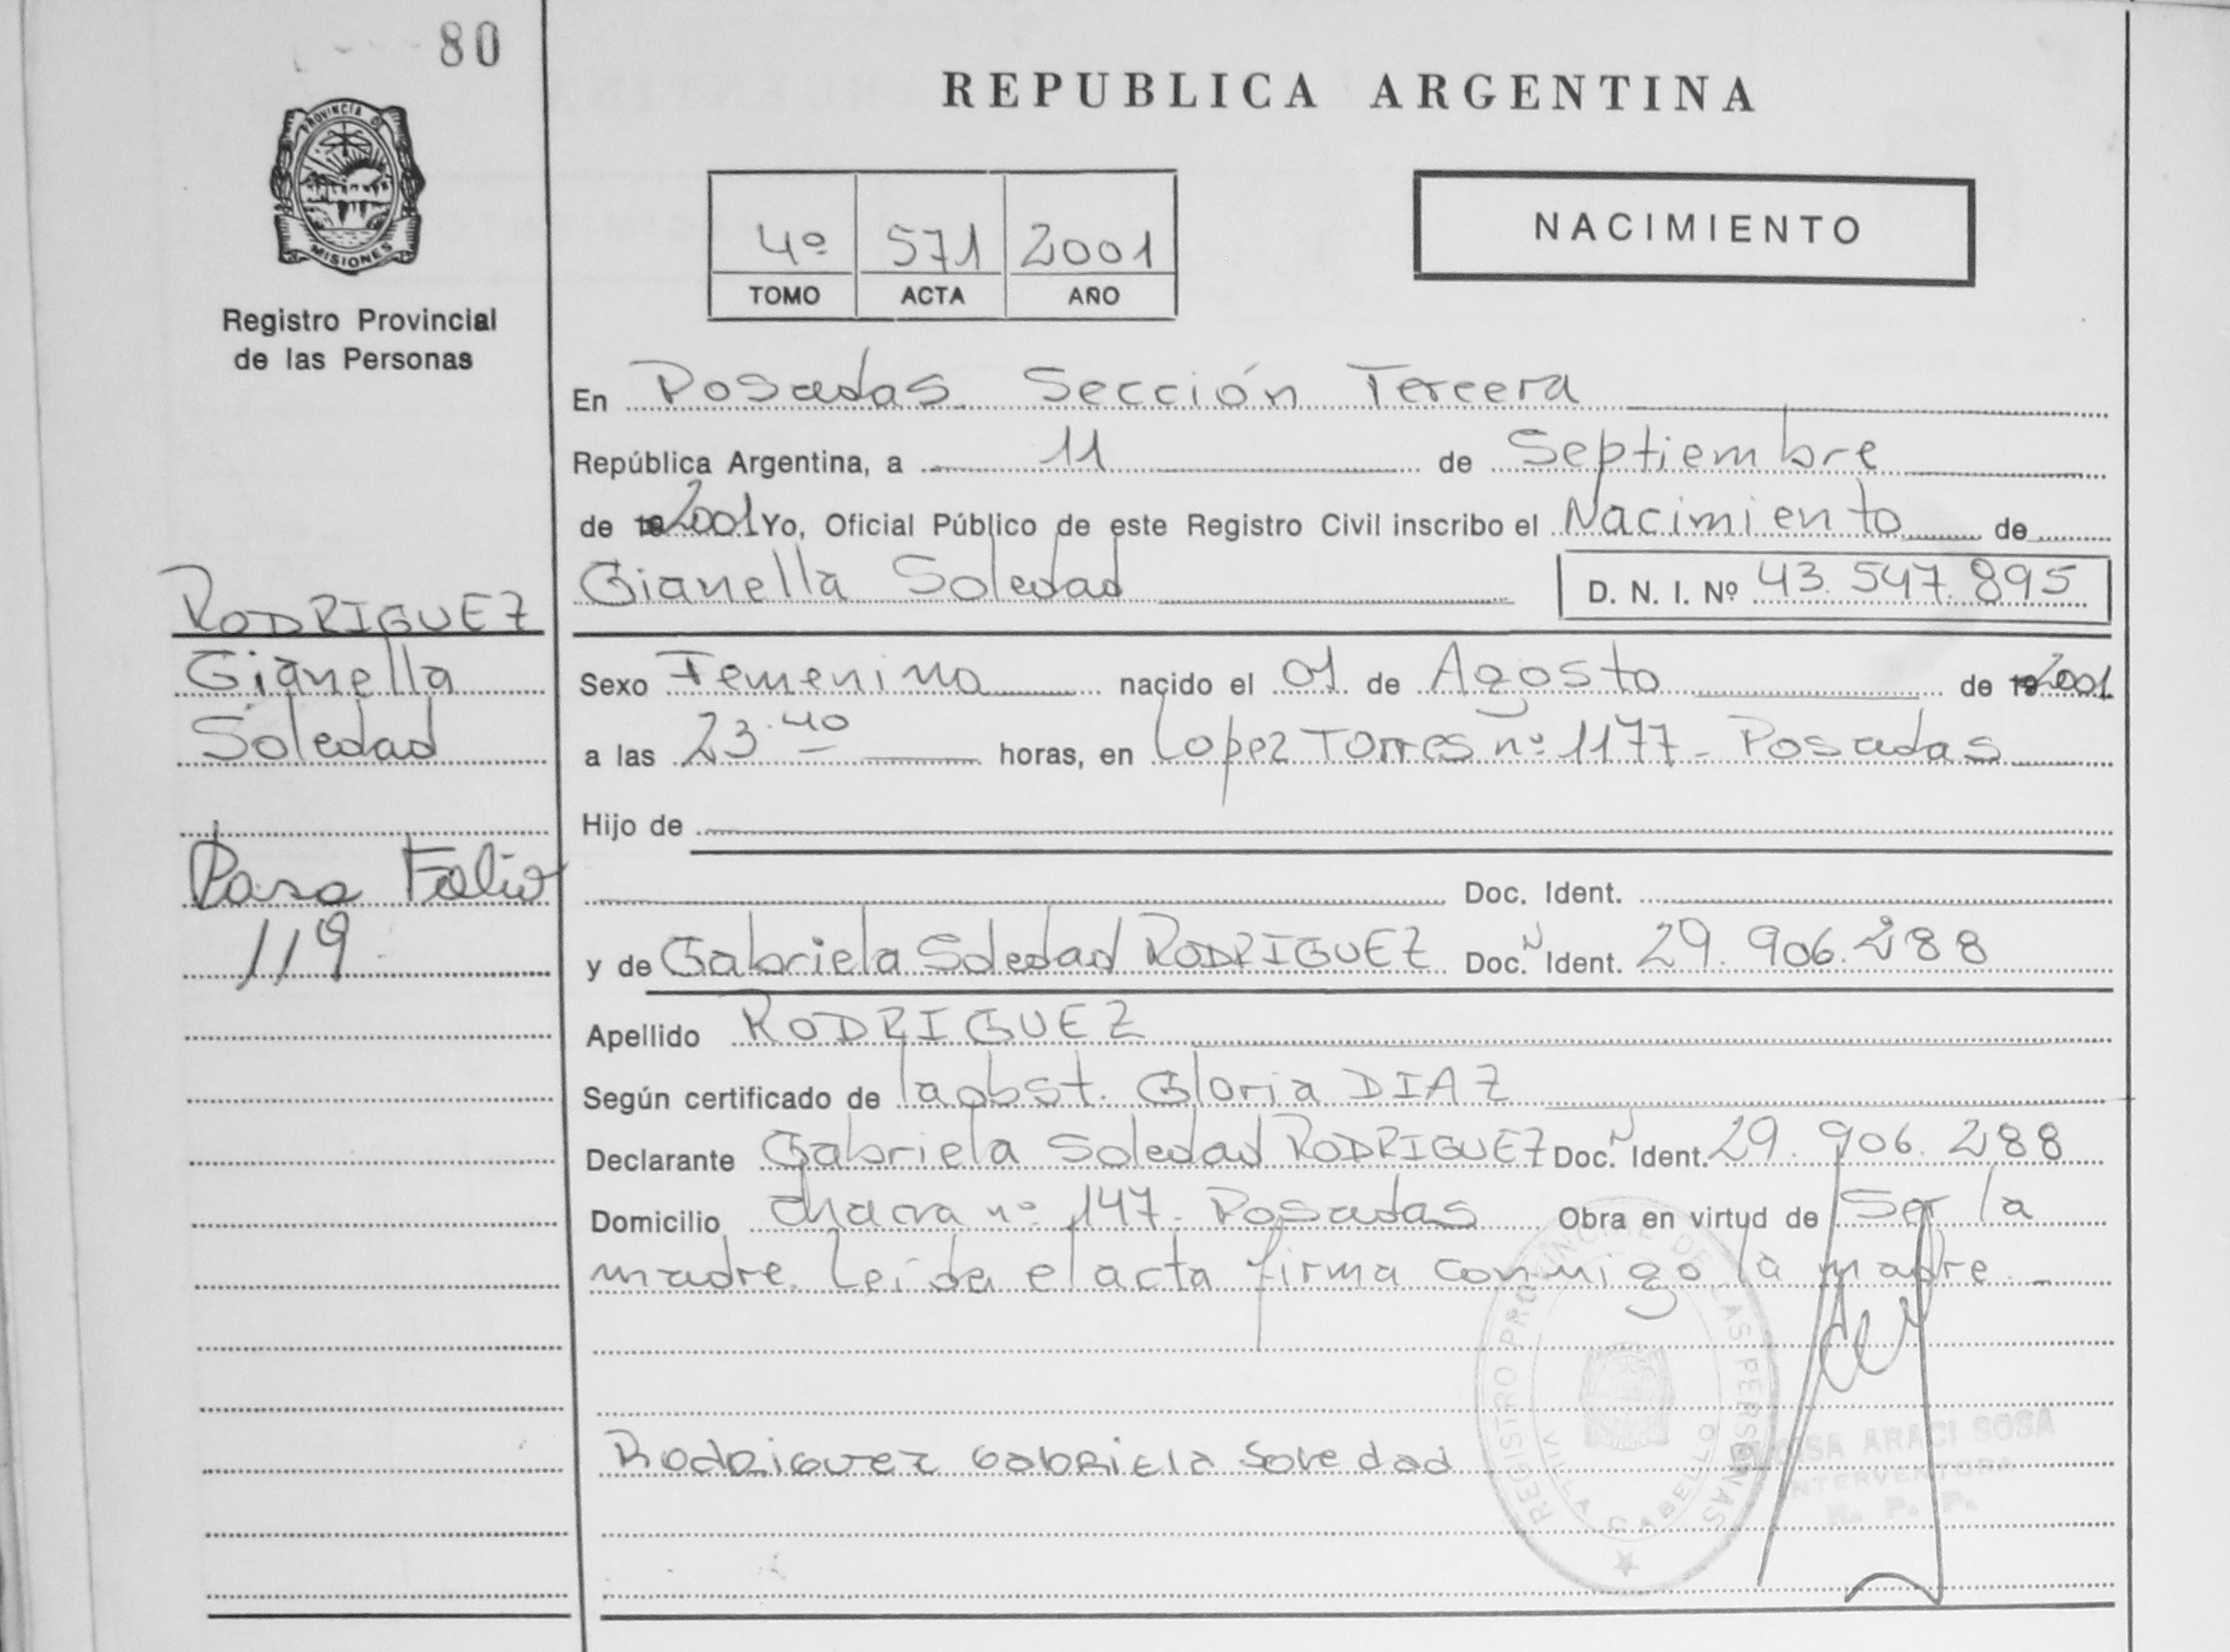 80
PROVINCIA DE
MISIONES
Registro Provincial
de las Personas
RODRIGUEZ
Gianella
Soledad
Pasa Folio
119
REPUBLICA ARGENTINA
4º 571 2001
TOMO ACTA AÑO
NACIMIENTO
En Posadas Sección Tercera
República Argentina, a 11 de Septiembre
de 19 2001 Yo, Oficial Público de este Registro Civil inscribo el Nacimiento de
Gianella Soledad D. N. I. Nº 43.547.895
Sexo Femenino nacido el 01 de Agosto de 19 2001
a las 23.40 horas, en Lopez Torres nº 1177 - Posadas
Hijo de
Doc. Ident.
y de Gabriela Soledad RODRIGUEZ Doc. N Ident. 29.906.288
Apellido RODRIGUEZ
Según certificado de la obst. Gloria DIAZ
Declarante Gabriela Soledad RODRIGUEZ Doc. N Ident. 29.906.288
Domicilio chacra nº 147 - Posadas Obra en virtud de Ser la
madre. Leída el acta firma conmigo la madre. -
Rodriguez Gabriela Soledad
REGISTRO PROVINCIAL DE LAS PERSONAS
VILLA CABELLO
ARACI SOSA
INTERVENTORA
R. P. P.